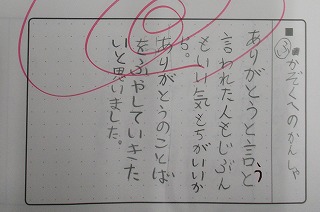 ③かぞくへのかんしゃ
ありがとうと言うと
言われた人もじぶん
もいい気もちがいいか
ら。
ありがとうのことば
をふやしていきた
いと思いました。